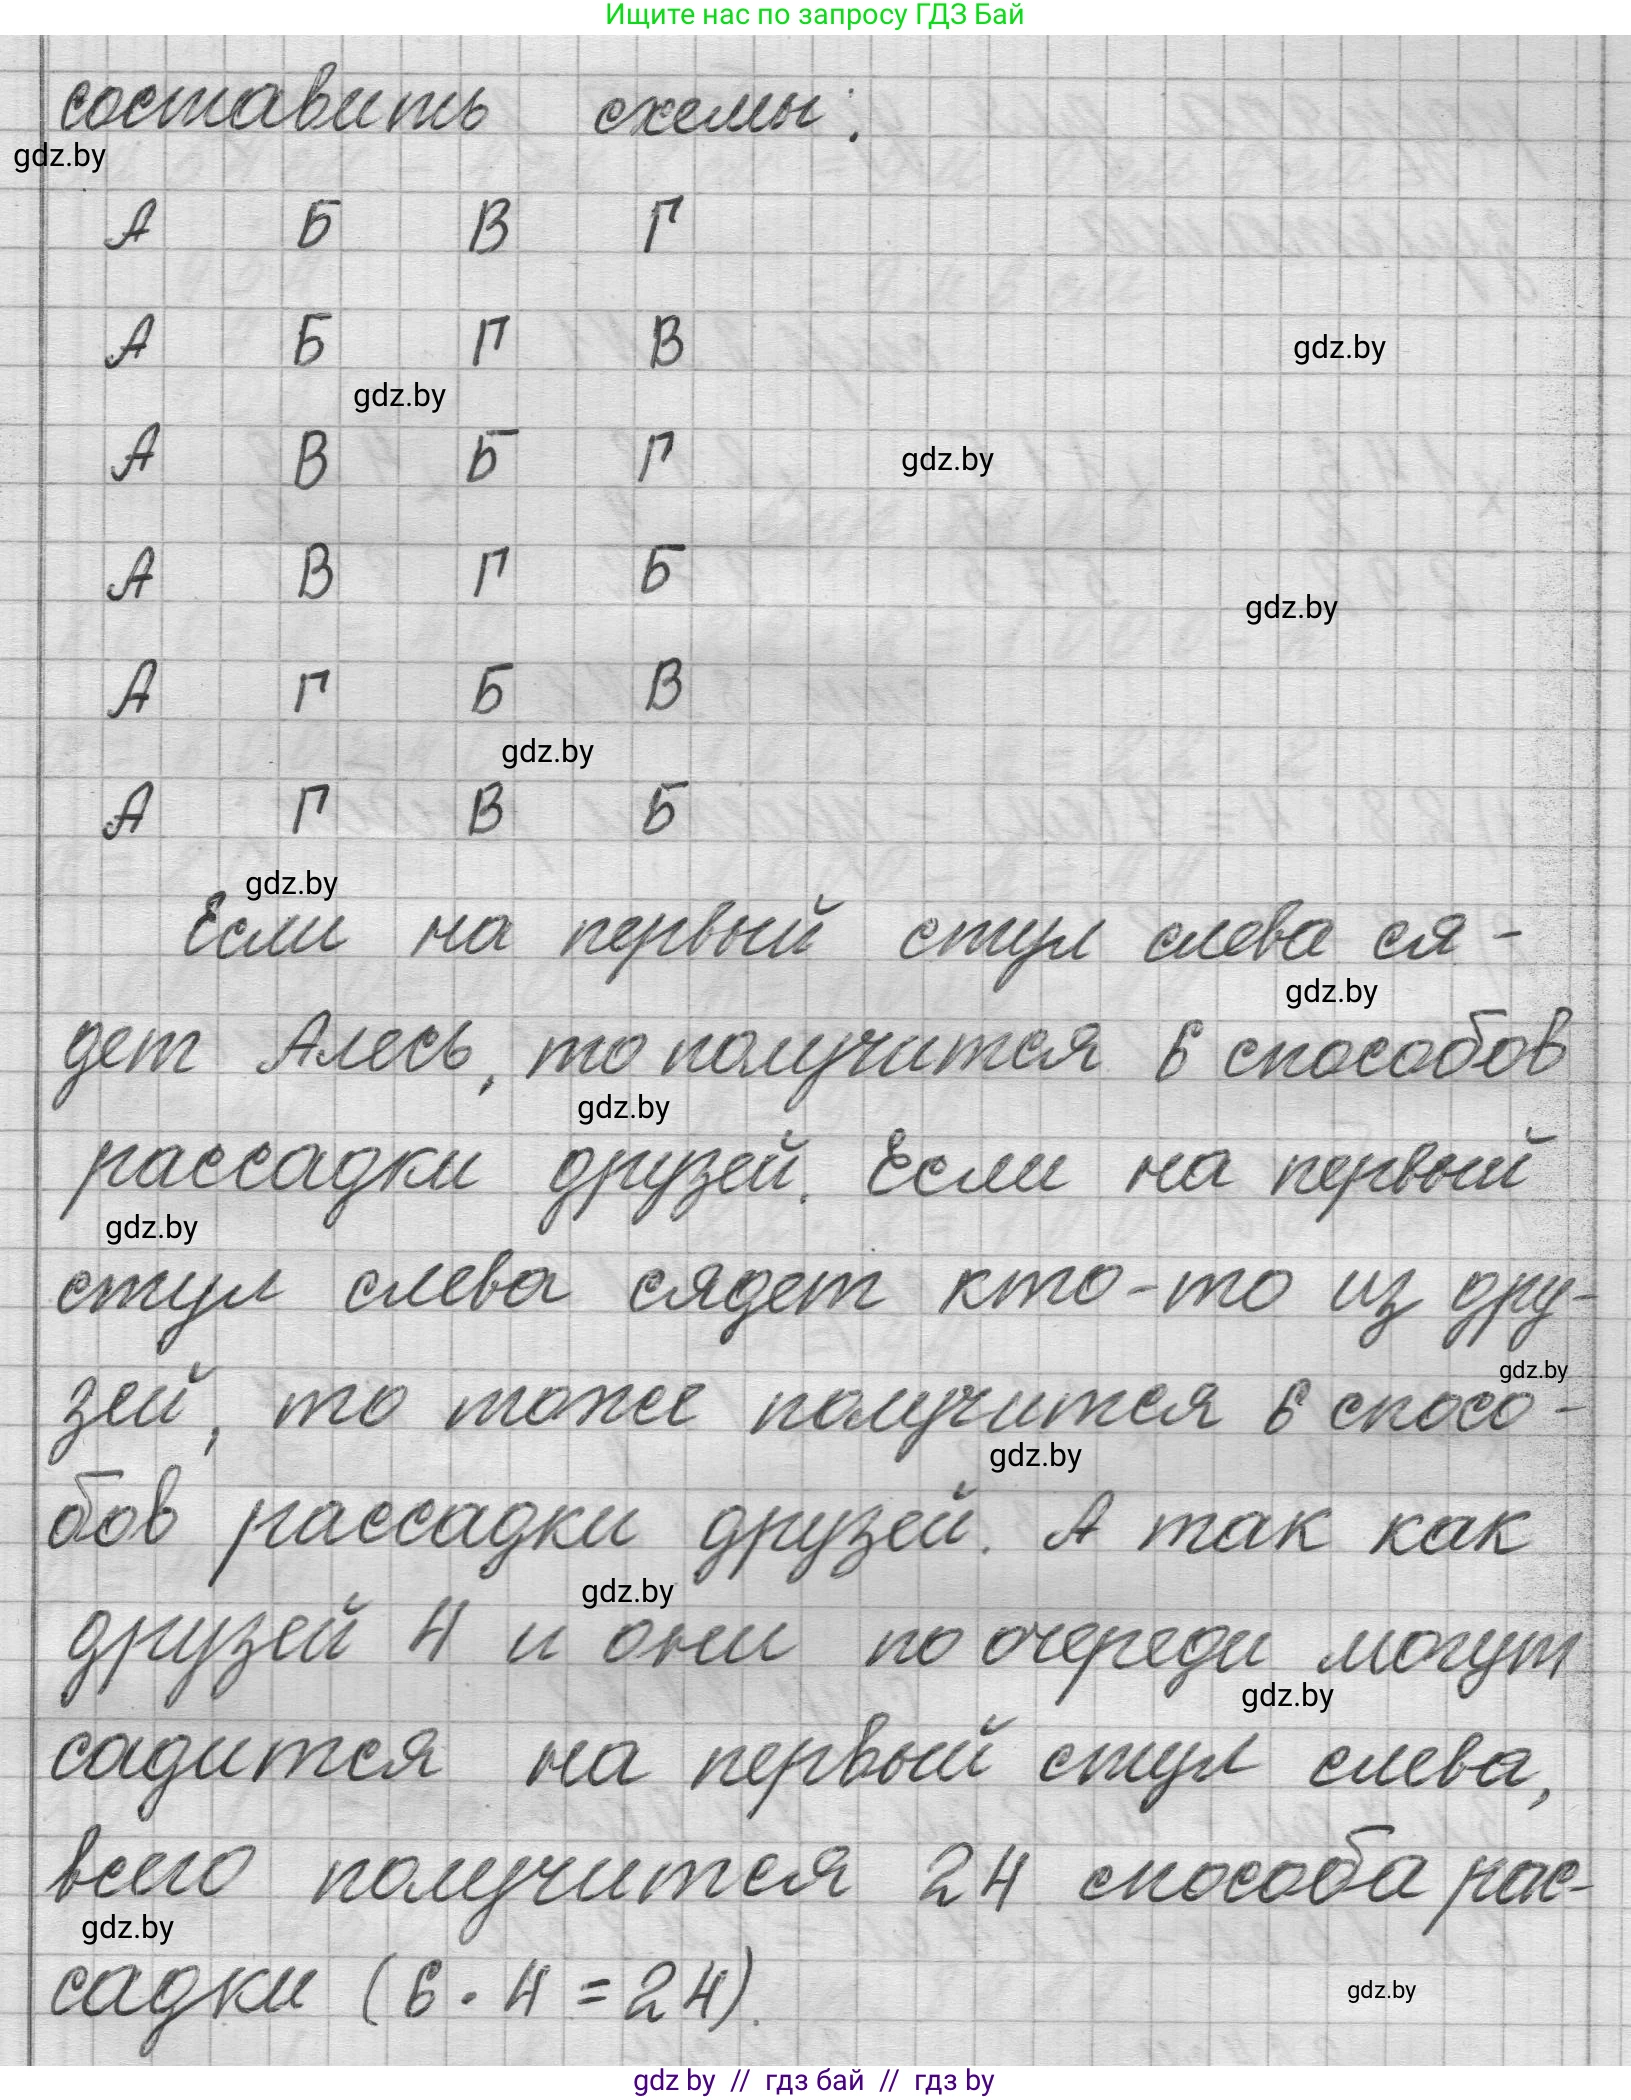 Ищите нас по запросу ГДЗ Бай
составить схемы:
gdz.by
А Б В Г
А Б Г В
gdz.by
gdz.by
А В Б Г
gdz.by
А В Г Б
gdz.by
А Г Б В
gdz.by
А Г В Б
gdz.by
Если на первый стул слева ся-
gdz.by
дет Алесь, то получится 6 способов
gdz.by
рассадки друзей. Если на первый
gdz.by
стул слева сядет кто-то из дру-
gdz.by
зей, то тоже получится 6 спосо-
gdz.by
бов рассадки друзей. А так как
gdz.by
друзей 4 и они по очереди могут
gdz.by
садится на первый стул слева,
всего получится 24 способа рас-
gdz.by
садки (6 · 4 = 24).
gdz.by
gdz by // гдз бай // гдз by